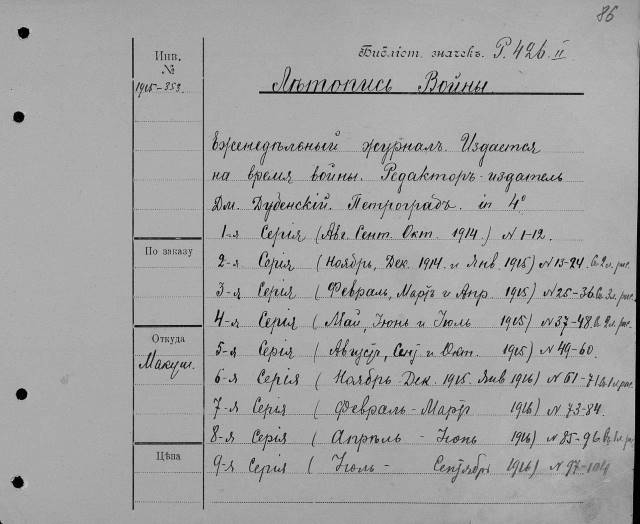 86
Библіот. значекъ. P. 426. II
Инв.
№
1915-353.
Лѣтопись Войны.
Еженедѣльный журналъ. Издается
на время войны. Редакторъ-издатель
Дм. Дубенскій. Петроградъ. in 4°
1-я Серія (Авг. Сент. Окт. 1914.) N 1-12.
По заказу
2-я Серія (Ноябрь, Дек. 1914. и Янв 1915) N 13-24. съ 2 л. рис.
3-я Серія (Февраль, Мартъ и Апр. 1915) N 25-36. съ 3 л. рис.
4-я Серія (Май, Іюнь и Іюль 1915) N 37-48. съ 2 л. рис.
Откуда
Макуш.
5-я Серія (Августъ, Сент. и Окт. 1915) N 49-60.
6-я Серія (Ноябрь Дек. 1915. Янв 1916) N 61-71 съ 1 л. рис.
7-я Серія (Февраль-Мартъ 1916) N 73-84.
8-я Серія (Апрѣль - Іюнь 1916) N 85-96 съ 1 л. рис.
Цѣна
9-я Серія (Іюль - Сентябрь 1916) N 97-104